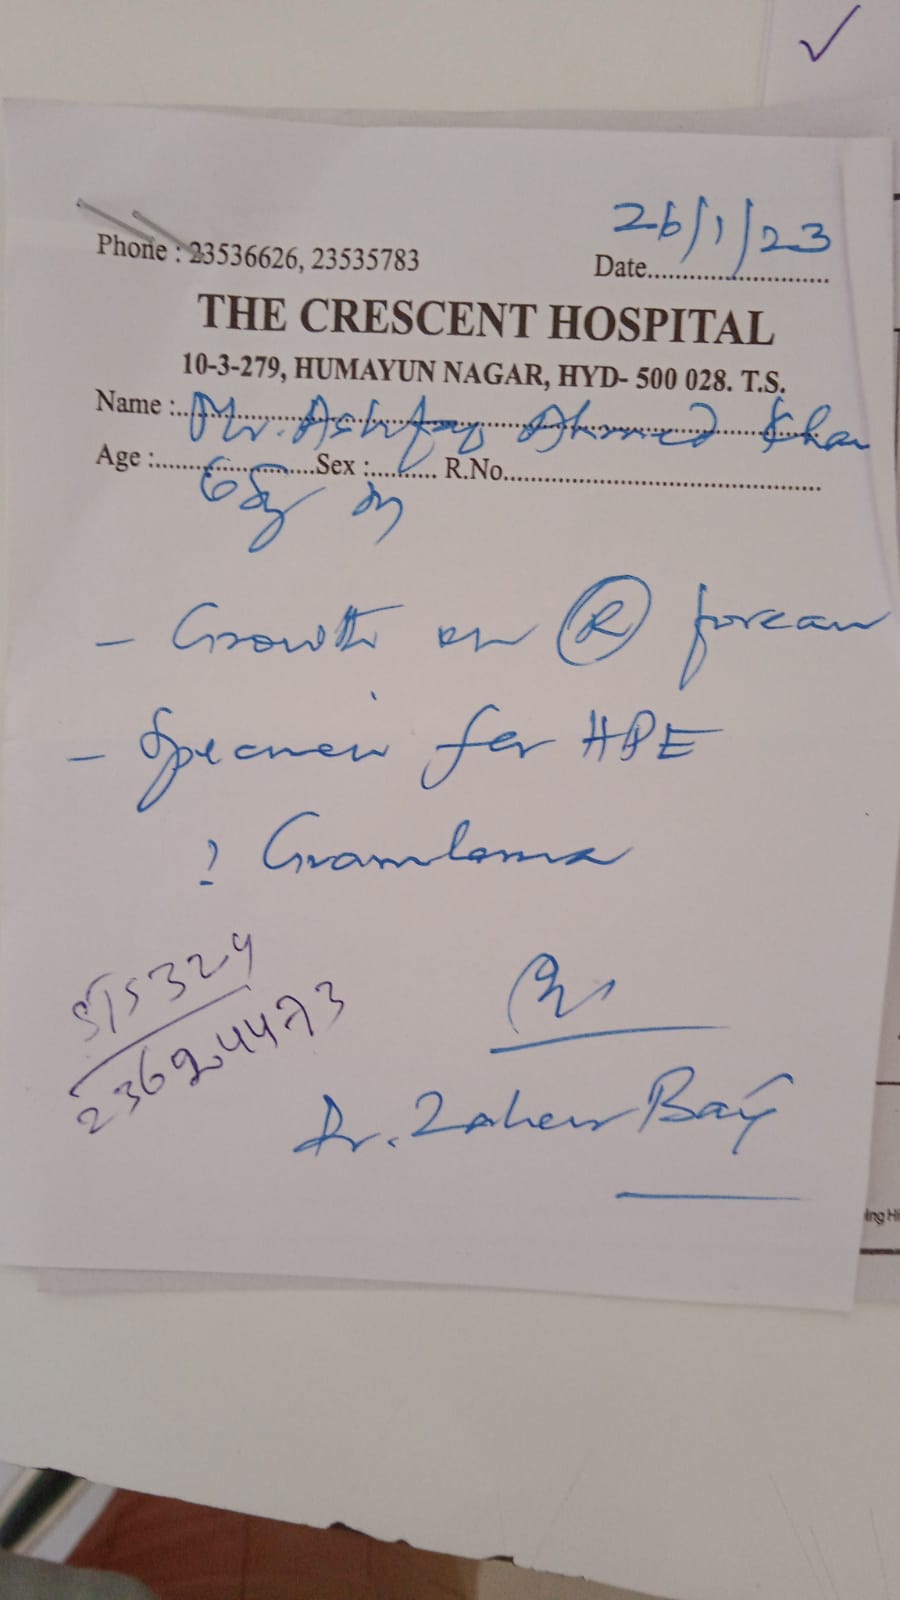 26/1/23
Phone : 23536626, 23535783
Date..........................
THE CRESCENT HOSPITAL
10-3-279, HUMAYUN NAGAR, HYD- 500 028. T.S.
Name : Mr. Ashfaq Ahmed Khan
Age :.......................Sex :.......... R.No.............................................
- Growth on Ⓡ
- Specimen for HPE
? Granuloma
STS324
Dr. Zaheer Baig